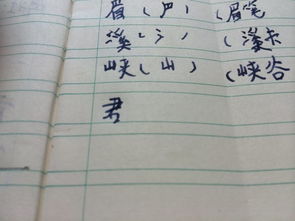 眉(尸) (眉笔
溪(氵) (溪
峡(山) (峡谷
君